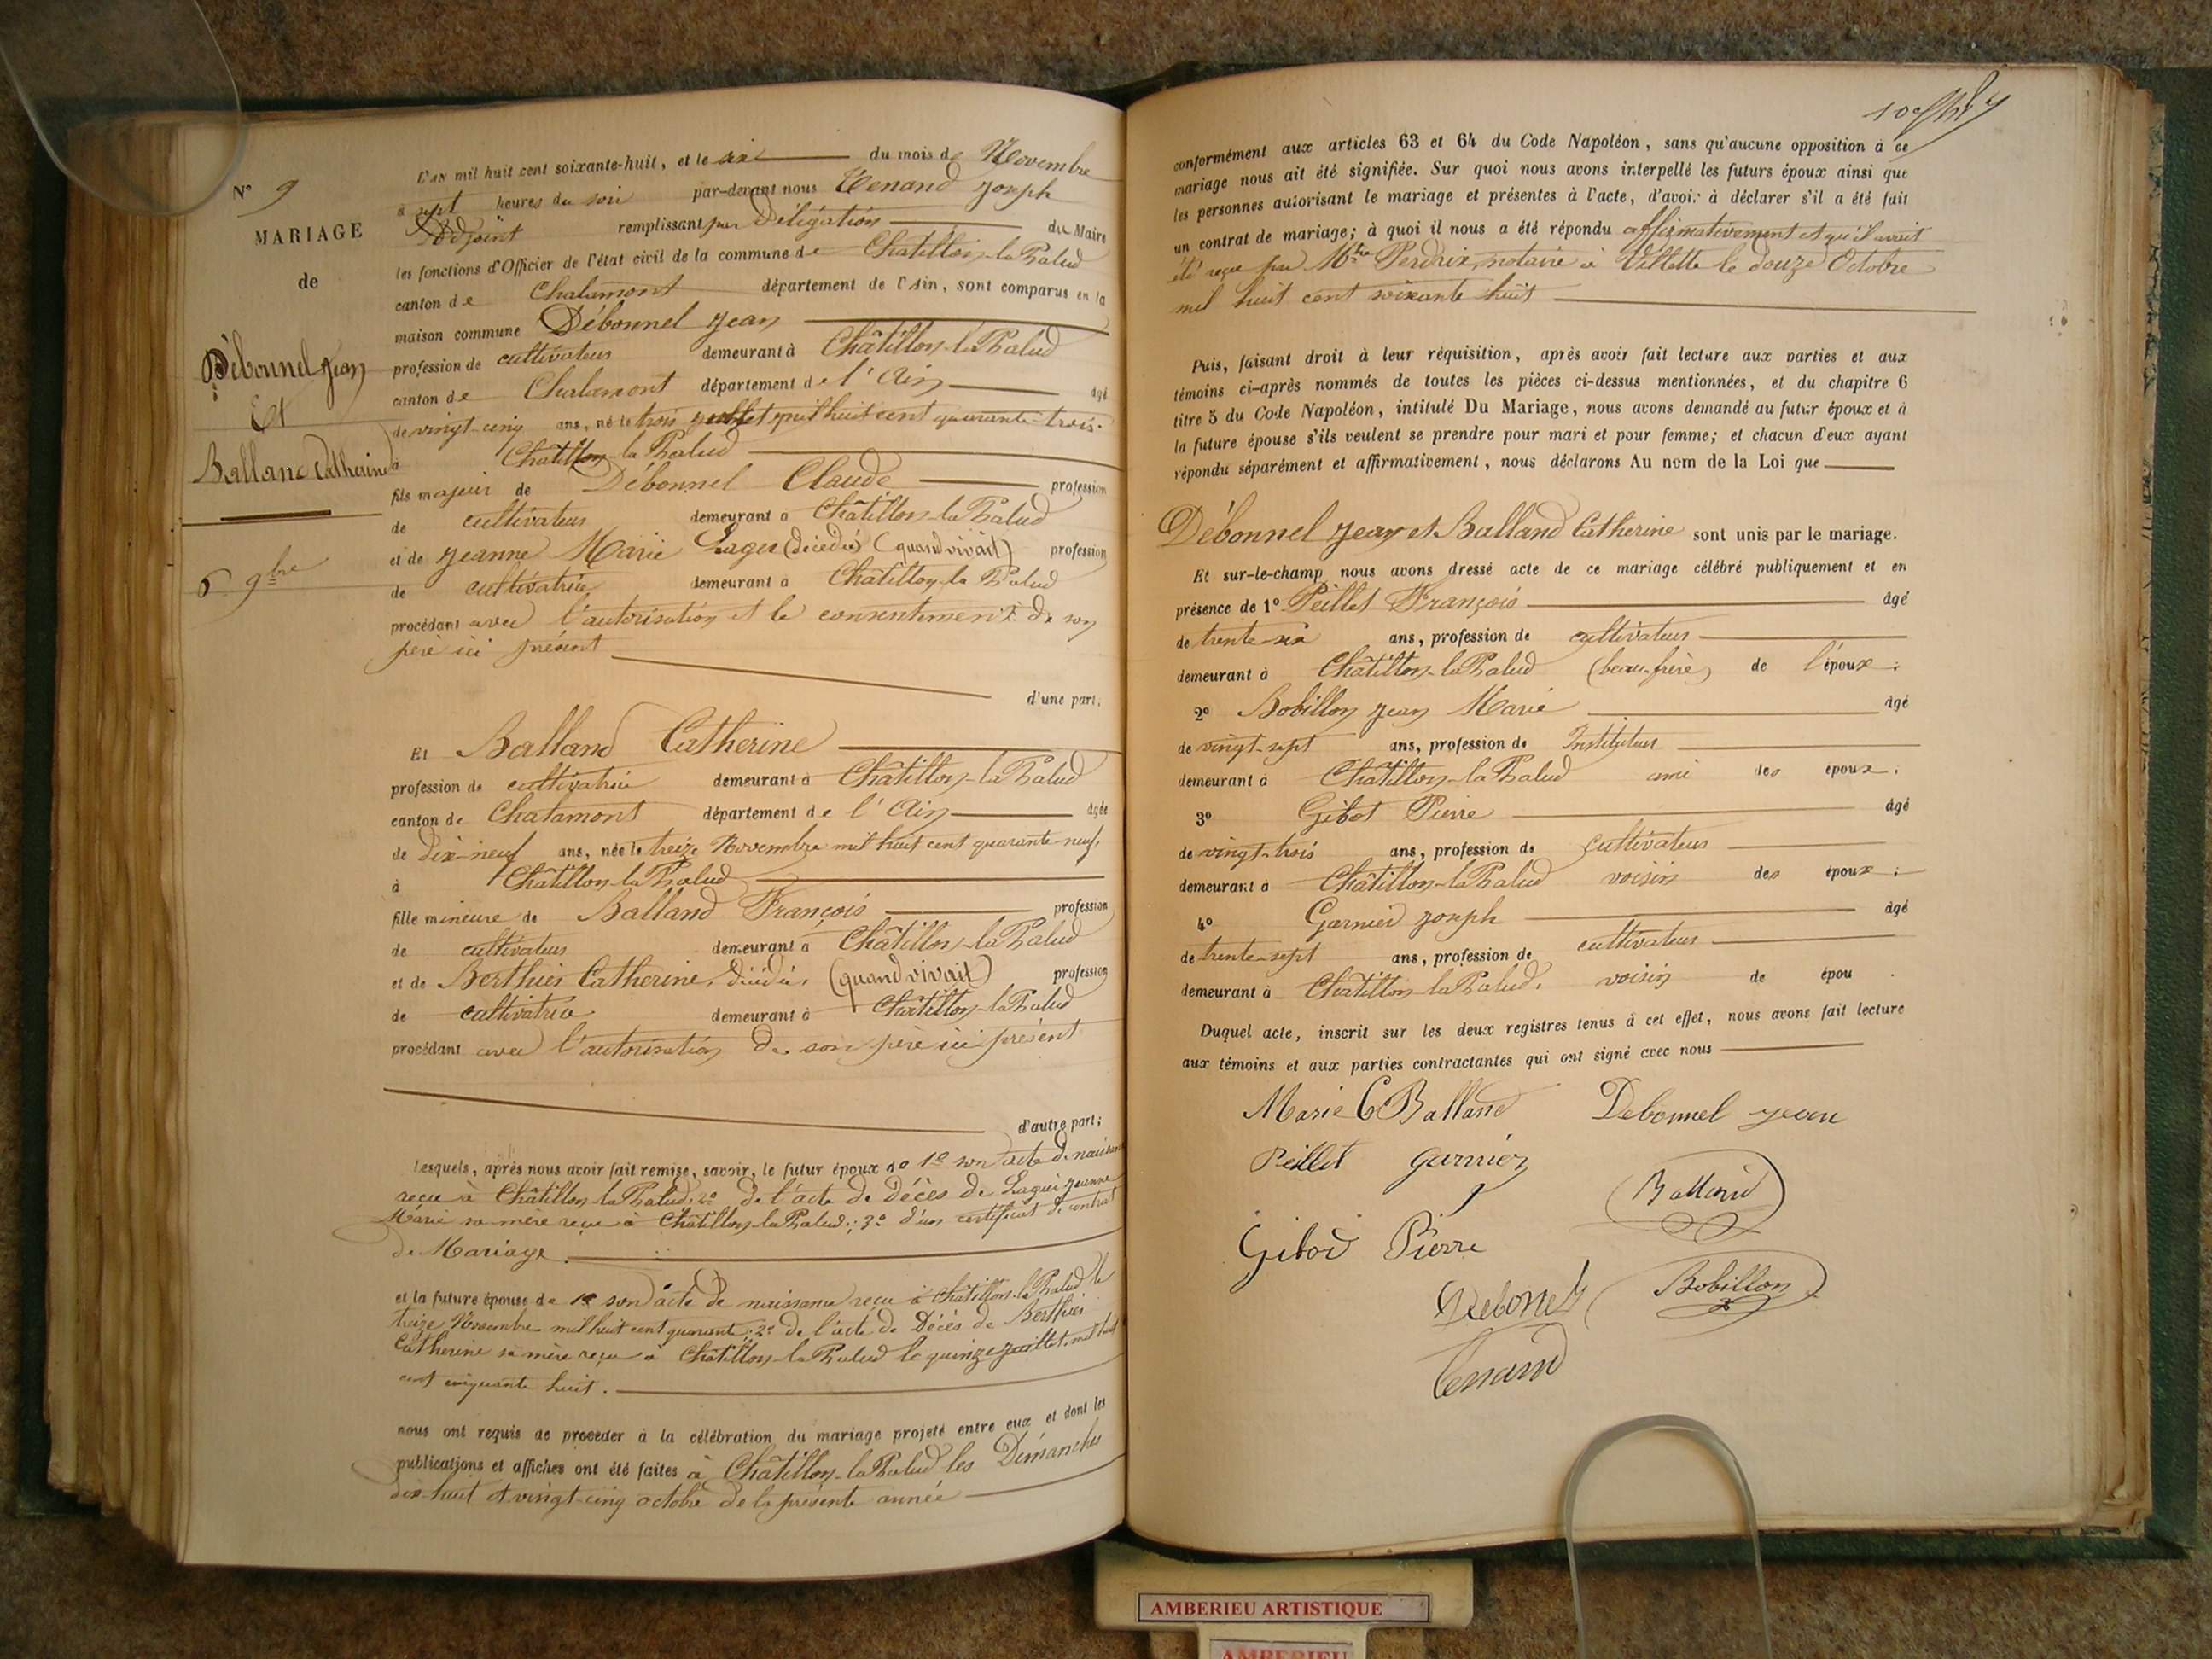 N° 9
MARIAGE
de
Débonnel Jean
Et
Balland Catherine
6 9bre
L'an mil huit cent soixante-huit, et le six du mois de Novembre
à sept heures du soir par-devant nous Tenand Joseph
Adjoint remplissant par Délégation du Maire
les fonctions d'Officier de l'état civil de la commune de Chatillon-la-Palud
canton de Chalamont département de l'Ain, sont comparus en la
maison commune Débonnel Jean
profession de cultivateur demeurant à Châtillon-la-Palud
canton de Chalamont département de l'Ain âgé
de vingt-cinq ans, né le trois juillet mil huit cent quarante-trois
à Chatillon-la-Palud
fils majeur de Débonnel Claude profession
de cultivateur demeurant à Châtillon-la-Palud
et de Jeanne Marie (décédée) (quand vivait) profession
de cultivatrice demeurant à Châtillon-la-Palud
procédant avec l'autorisation et le consentement de son
père ici présent
d'une part;
Et Balland Catherine
profession de cultivatrice demeurant à Châtillon-la-Palud
canton de Chalamont département de l'Ain âgée
de dix-neuf ans, née le treize Novembre mil huit cent quarante-neuf,
à Châtillon-la-Palud
fille mineure de Balland François profession
de cultivateur demeurant à Châtillon-la-Palud
et de Berthier Catherine, décédée, (quand vivait) profession
de cultivatrice demeurant à Châtillon-la-Palud
procédant avec l'autorisation de son père ici présent
d'autre part;
Lesquels, après nous avoir fait remise, savoir, le futur époux de 1° son acte de naissance
reçu à Châtillon-la-Palud; 2° de l'acte de décès de Jeanne
Marie sa mère reçu à Châtillon-la-Palud; 3° d'un certificat de contrat
de Mariage.
et la future épouse de 1° son acte de naissance reçu à Châtillon-la-Palud le
treize Novembre mil huit cent quarante; 2° de l'acte de Décès de Berthier
Catherine sa mère reçu à Châtillon-la-Palud le quinze juillet mil huit
cent cinquante huit.
nous ont requis de procéder à la célébration du mariage projeté entre eux et dont les
publications et affiches ont été faites à Châtillon-la-Palud les Dimanches
dix-huit et vingt-cinq octobre de la présente année
conformément aux articles 63 et 64 du Code Napoléon, sans qu'aucune opposition à ce
mariage nous ait été signifiée. Sur quoi nous avons interpellé les futurs époux ainsi que
les personnes autorisant le mariage et présentes à l'acte, d'avoir à déclarer s'il a été fait
un contrat de mariage; à quoi il nous a été répondu affirmativement et qu'il avait
été reçu par Mtre Perdrix, notaire à Villette le douze Octobre
mil huit cent soixante huit
Puis, faisant droit à leur réquisition, après avoir fait lecture aux parties et aux
témoins ci-après nommés de toutes les pièces ci-dessus mentionnées, et du chapitre 6
titre 5 du Code Napoléon, intitulé Du Mariage, nous avons demandé au futur époux et à
la future épouse s'ils veulent se prendre pour mari et pour femme; et chacun d'eux ayant
répondu séparément et affirmativement, nous déclarons Au nom de la Loi que
Débonnel Jean et Balland Catherine sont unis par le mariage.
Et sur-le-champ nous avons dressé acte de ce mariage célébré publiquement et en
présence de 1° Peillet François âgé
de trente-six ans, profession de cultivateur
demeurant à Châtillon-la-Palud (beau-frère) de l'époux;
2° Bobillon Jean Marie âgé
de vingt-sept ans, profession de Instituteur
demeurant à Châtillon-la-Palud ami des époux;
3° Gibot Pierre âgé
de vingt-trois ans, profession de cultivateur
demeurant à Châtillon-la-Palud voisin des époux;
4° Garnier Joseph âgé
de trente-sept ans, profession de cultivateur
demeurant à Châtillon-la-Palud, voisin de épou .
Duquel acte, inscrit sur les deux registres tenus à cet effet, nous avons fait lecture
aux témoins et aux parties contractantes qui ont signé avec nous
Marie C Balland Debonnel jean
Peillet garnier
Balland
Gibod Pierre
Debonel Bobillon
Tenand
AMBERIEU ARTISTIQUE
AMBERIEU